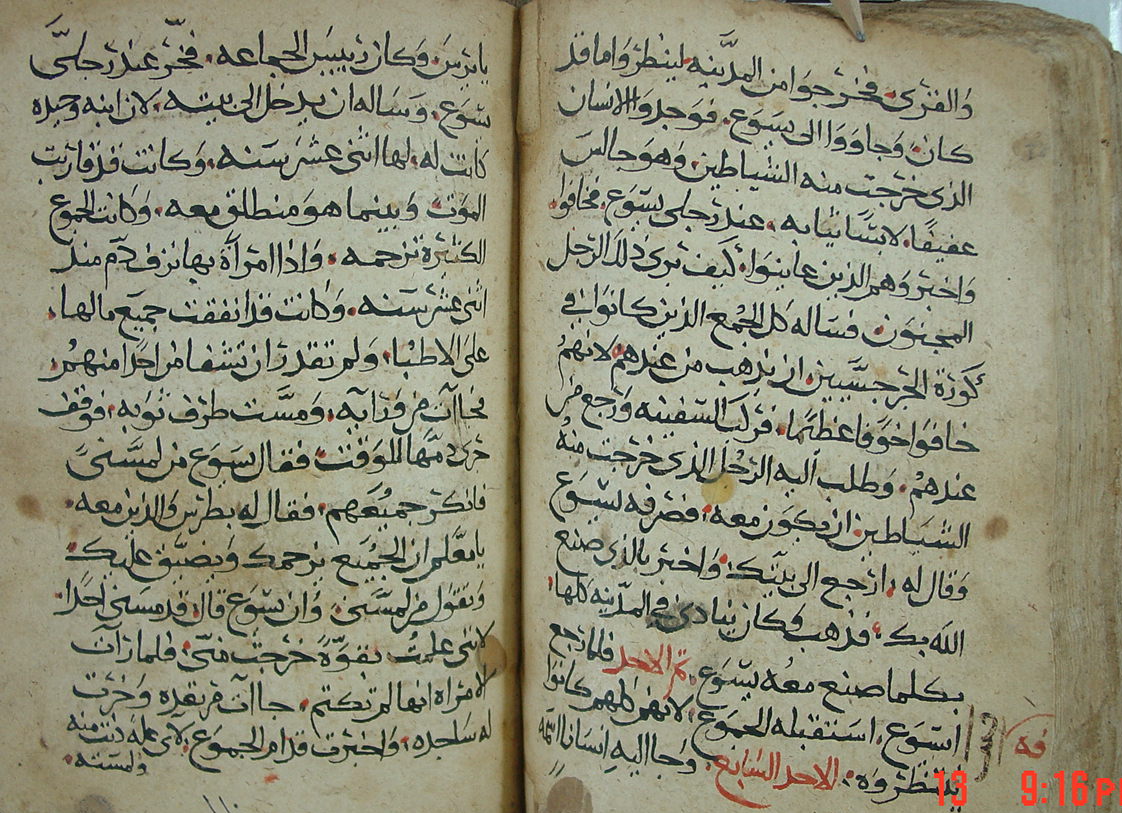 والقرى. فخرجوا من المدينه لينظروا ما قد
كان. وجاووا الى يسوع. فوجدوا الانسان
الذى خرجت منه الشياطين. وهو جالس
عفيفا. لابسا ثيابه. عند رجلى يسوع. فخافوا.
واخبروهم الذين عاينوا. كيف برى ذلك الرجل
المجنون. فساله كل الجمع الذين كانوا فى
كورة الجرجسيين. ان يذهب من عندهم لانهم
خافوا خوفا عظيما. فركب السفينه ورجع من
عندهم. وطلب اليه الرجل الذى خرجت منه
الشياطين. ان يكون معه. فصرفه يسوع
وقال له. ارجع الى بيتك. واخبر بالذى صنع
الله بك. فذهب وكان ينادى فى المدينه كلها.
بكلما صنع معه يسوع. تم الاحد فلما رجع
يسوع. استقبله الجموع. لانهم كلهم كانوا
ينتظروه. الاحد السابع. وجا اليه انسانا اسمه
فه
يايرس. وكان رييس الجماعه. فخر عند رجلى
يسوع. وساله ان يدخل الى بيته. لان ابنه وحيده
كانت له. لها اثنى عشر سنه. وكانت قد قاربت
الموت. وبينما هو منطلق معه. وكانت الجموع
الكثيره تزحمه. واذا امراة بها نزف دم منذ
اثنى عشر سنه. وكانت قد انفقت جميع مالها.
على الاطبا. ولم تقدر ان تشفا من احدا منهم.
فجاات من ورايه. ومست طرف ثوبه. فوقف
جرى دمها للوقت. فقال يسوع من لمسنى
فانكر جميعهم. فقال له بطرس والذين معه.
يا معلم ان الجميع يزحمك ويضيق عليك.
وتقول من لمسنى. وان يسوع قال قد مسنى احدا.
لاننى علمت بقوة خرجت منى. فلما رات
الامراه انها لم تكتم. جاات مرتعده وخرت
له ساجده. واخبرت قدام الجموع. لاى عله دنت منه
ولمسته.
13 9:16